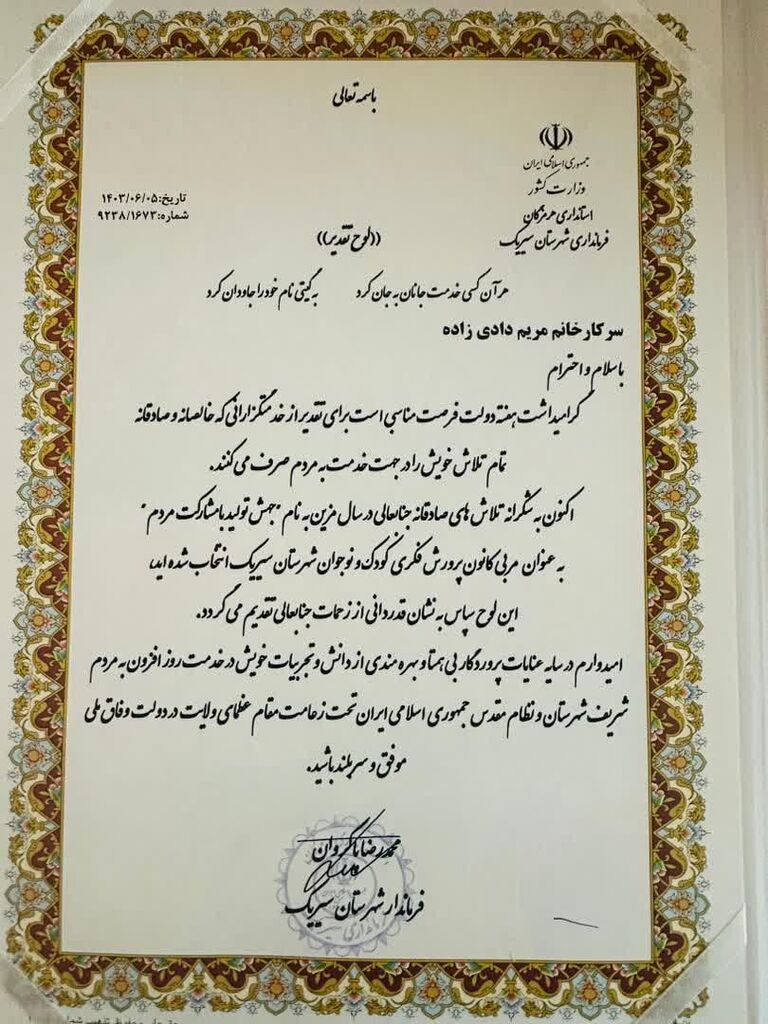 باسمه تعالی
جمهوری اسلامی ایران
وزارت کشور
استانداری هرمزگان
فرمانداری شهرستان سیریک
تاریخ:۱۴۰۳/۰۶/۰۵
شماره:۹۲۳۸/۱۶۷۳
((لوح تقدیر))
هر آن کسی خدمت جانان به جان کرد به گیتی نام خود را جاودان کرد
سرکار خانم مریم دادی زاده
با سلام و احترام
گرامیداشت هفته دولت فرصت مناسبی است برای تقدیر از خدمتگزارانی که خالصانه و صادقانه
تمام تلاش خویش را در جهت خدمت به مردم صرف می کنند.
اکنون به شکرانه تلاش های صادقانه جنابعالی در سال مزین به نام "جهش تولید با مشارکت مردم"
به عنوان مربی کانون پرورش فکری کودک و نوجوان شهرستان سیریک انتخاب شده اید،
این لوح سپاس به نشان قدردانی از زحمات جنابعالی تقدیم می گردد.
امیدوارم در سایه عنایات پروردگار بی همتا و بهره مندی از دانش و تجربیات خویش در خدمت روز افزون به مردم
شریف شهرستان و نظام مقدس جمهوری اسلامی ایران تحت زعامت مقام عظمای ولایت در دولت وفاق ملی
موفق و سربلند باشید.
محمدرضا باکروان
فرماندار شهرستان سیریک